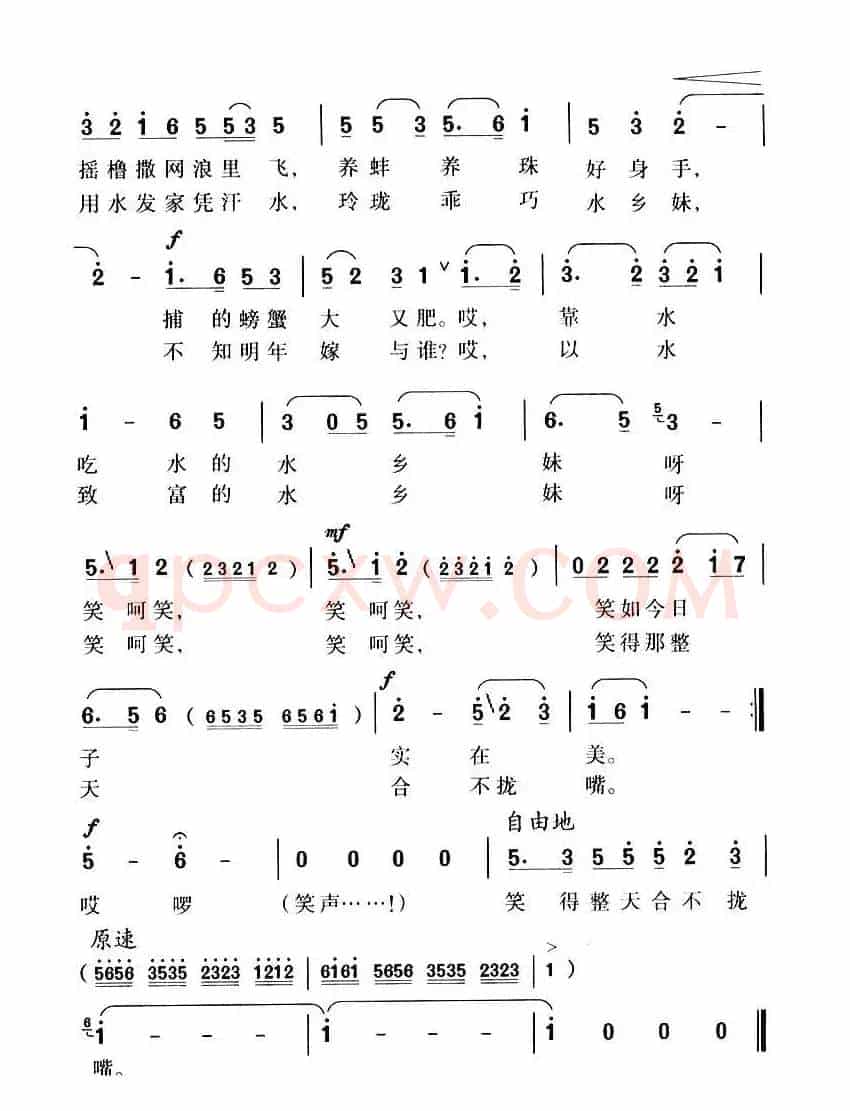 3 2 1 6 5 5 3 5 | 5 5 3 5. 6 1 | 5 3 2 -
摇橹撒网浪里飞, 养蚌养珠好身手,
用水发家凭汗水, 玲珑乖巧水乡妹,
f
2 - 1. 6 5 3 | 5 2 3 1 ∨ 1. 2 | 3. 2 3 2 1
捕的螃蟹大又肥。哎, 靠水
不知明年嫁与谁?哎, 以水
1 - 6 5 | 3 0 5 5. 6 1 | 6. 5 5 3 -
吃水的水乡妹呀
致富的水乡妹呀
mf
5. 1 2 (2 3 2 1 2) | 5. 1 2 (2 3 2 1 2) | 0 2 2 2 2 2 1 7
笑呵笑, 笑呵笑, 笑如今日
笑呵笑, 笑呵笑, 笑得那整
f
6. 5 6 (6 5 3 5 6 5 6 1) | 2 - 5 2 3 | 1 6 1 - - :‖
子实在美。
天合不拢嘴。
f 自由地
5 - 6 - | 0 0 0 0 | 5. 3 5 5 5 2 3
哎啰(笑声……!)笑得整天合不拢
原速
(5656 3535 2323 1212 | 6161 5656 3535 2323 | 1)
6 1 - - - | 1 - - - | 1 0 0 0 ‖
嘴。
qpcxw.com